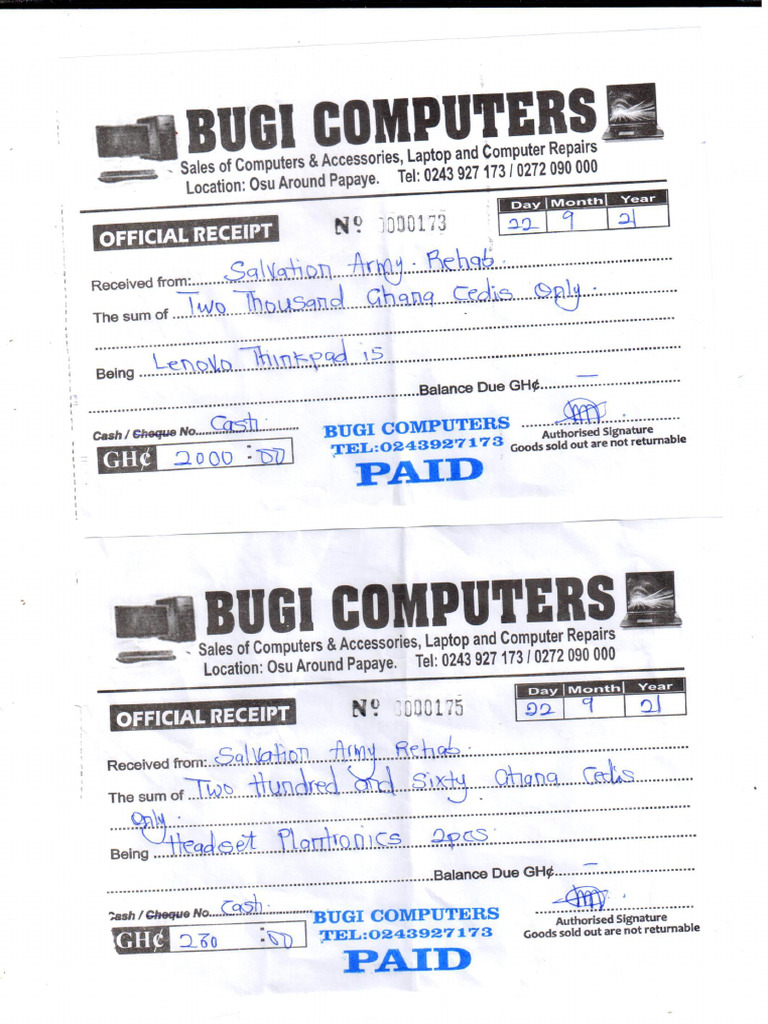 BUGI COMPUTERS
Sales of Computers & Accessories, Laptop and Computer Repairs
Location: Osu Around Papaye. Tel: 0243 927 173 / 0272 090 000
Day Month Year
OFFICIAL RECEIPT Nº 0000173 22 9 21
Received from: Salvation Army Rehab.
The sum of Two Thousand Ghana Cedis Only.
Being Lenovo Thinkpad i5
Balance Due GH¢ —
Cash / Cheque No. Cash.
BUGI COMPUTERS
TEL:0243927173
PAID
Authorised Signature
Goods sold out are not returnable
GH¢ 2000 : 00
BUGI COMPUTERS
Sales of Computers & Accessories, Laptop and Computer Repairs
Location: Osu Around Papaye. Tel: 0243 927 173 / 0272 090 000
Day Month Year
OFFICIAL RECEIPT Nº 0000175 22 9 21
Received from: Salvation Army Rehab.
The sum of Two Hundred and Sixty Ghana Cedis
Only.
Being Headset Plantronics 2pcs
Balance Due GH¢ —
Cash / Cheque No. Cash.
BUGI COMPUTERS
TEL:0243927173
PAID
Authorised Signature
Goods sold out are not returnable
GH¢ 260 : 00